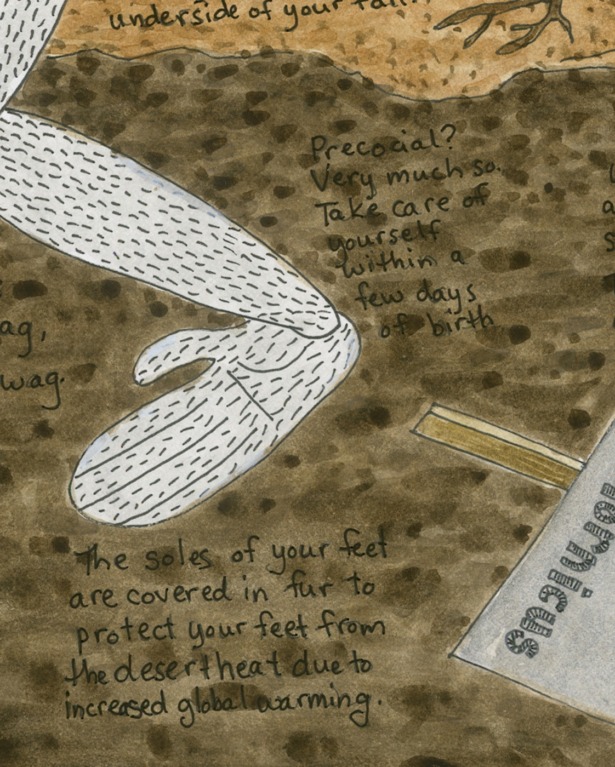 underside of your tail.
Precocial?
Very much so.
Take care of
yourself
within a
few days
of birth
ag,
wag.
The soles of your feet
are covered in fur to
protect your feet from
the desert heat due to
increased global warming.
ornicus